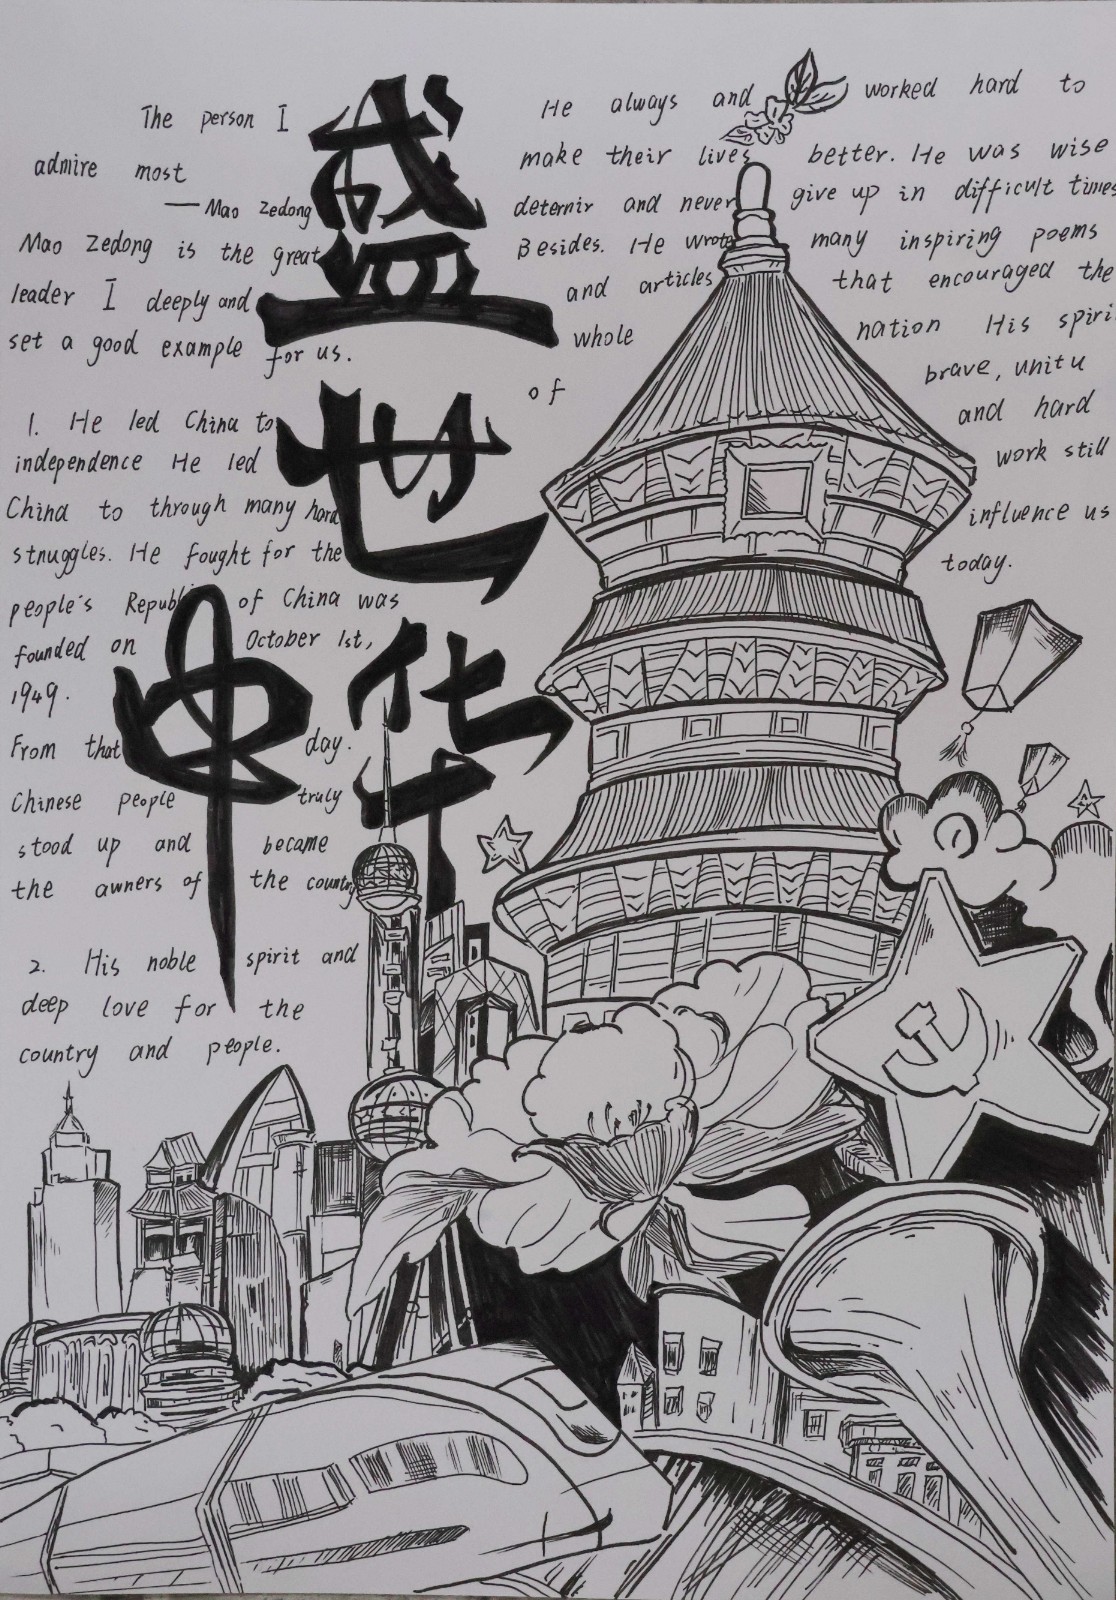 The person I
admire most
— Mao Zedong
Mao Zedong is the great
leader I deeply and
set a good example for us.
1. He led China to
independence He led
China to through many hard
stnuggles. He fought for the
people's Republi of China was
founded on October 1st,
1949.
From that day.
Chinese people truly
stood up and became
the awners of the country
2. His noble spirit and
deep love for the
country and people.
盛世
中华
He always and worked hard to
make their lives better. He was wise
deternir and never give up in difficult times
Besides. He wrote many inspiring poems
and articles that encouraged the
whole nation His spiri
of brave, unitu
and hard
work still
influence us
today.